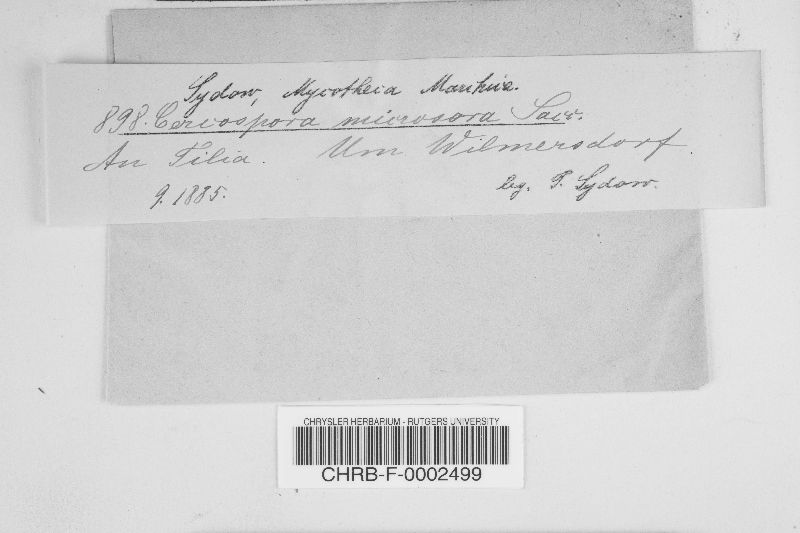 Sydow, Mycotheca Marchica.
898. Cercospora microsora Sacc.
An Tilia. Um Wilmersdorf
9. 1885. leg. P. Sydow.
CHRYSLER HERBARIUM - RUTGERS UNIVERSITY
CHRB-F-0002499